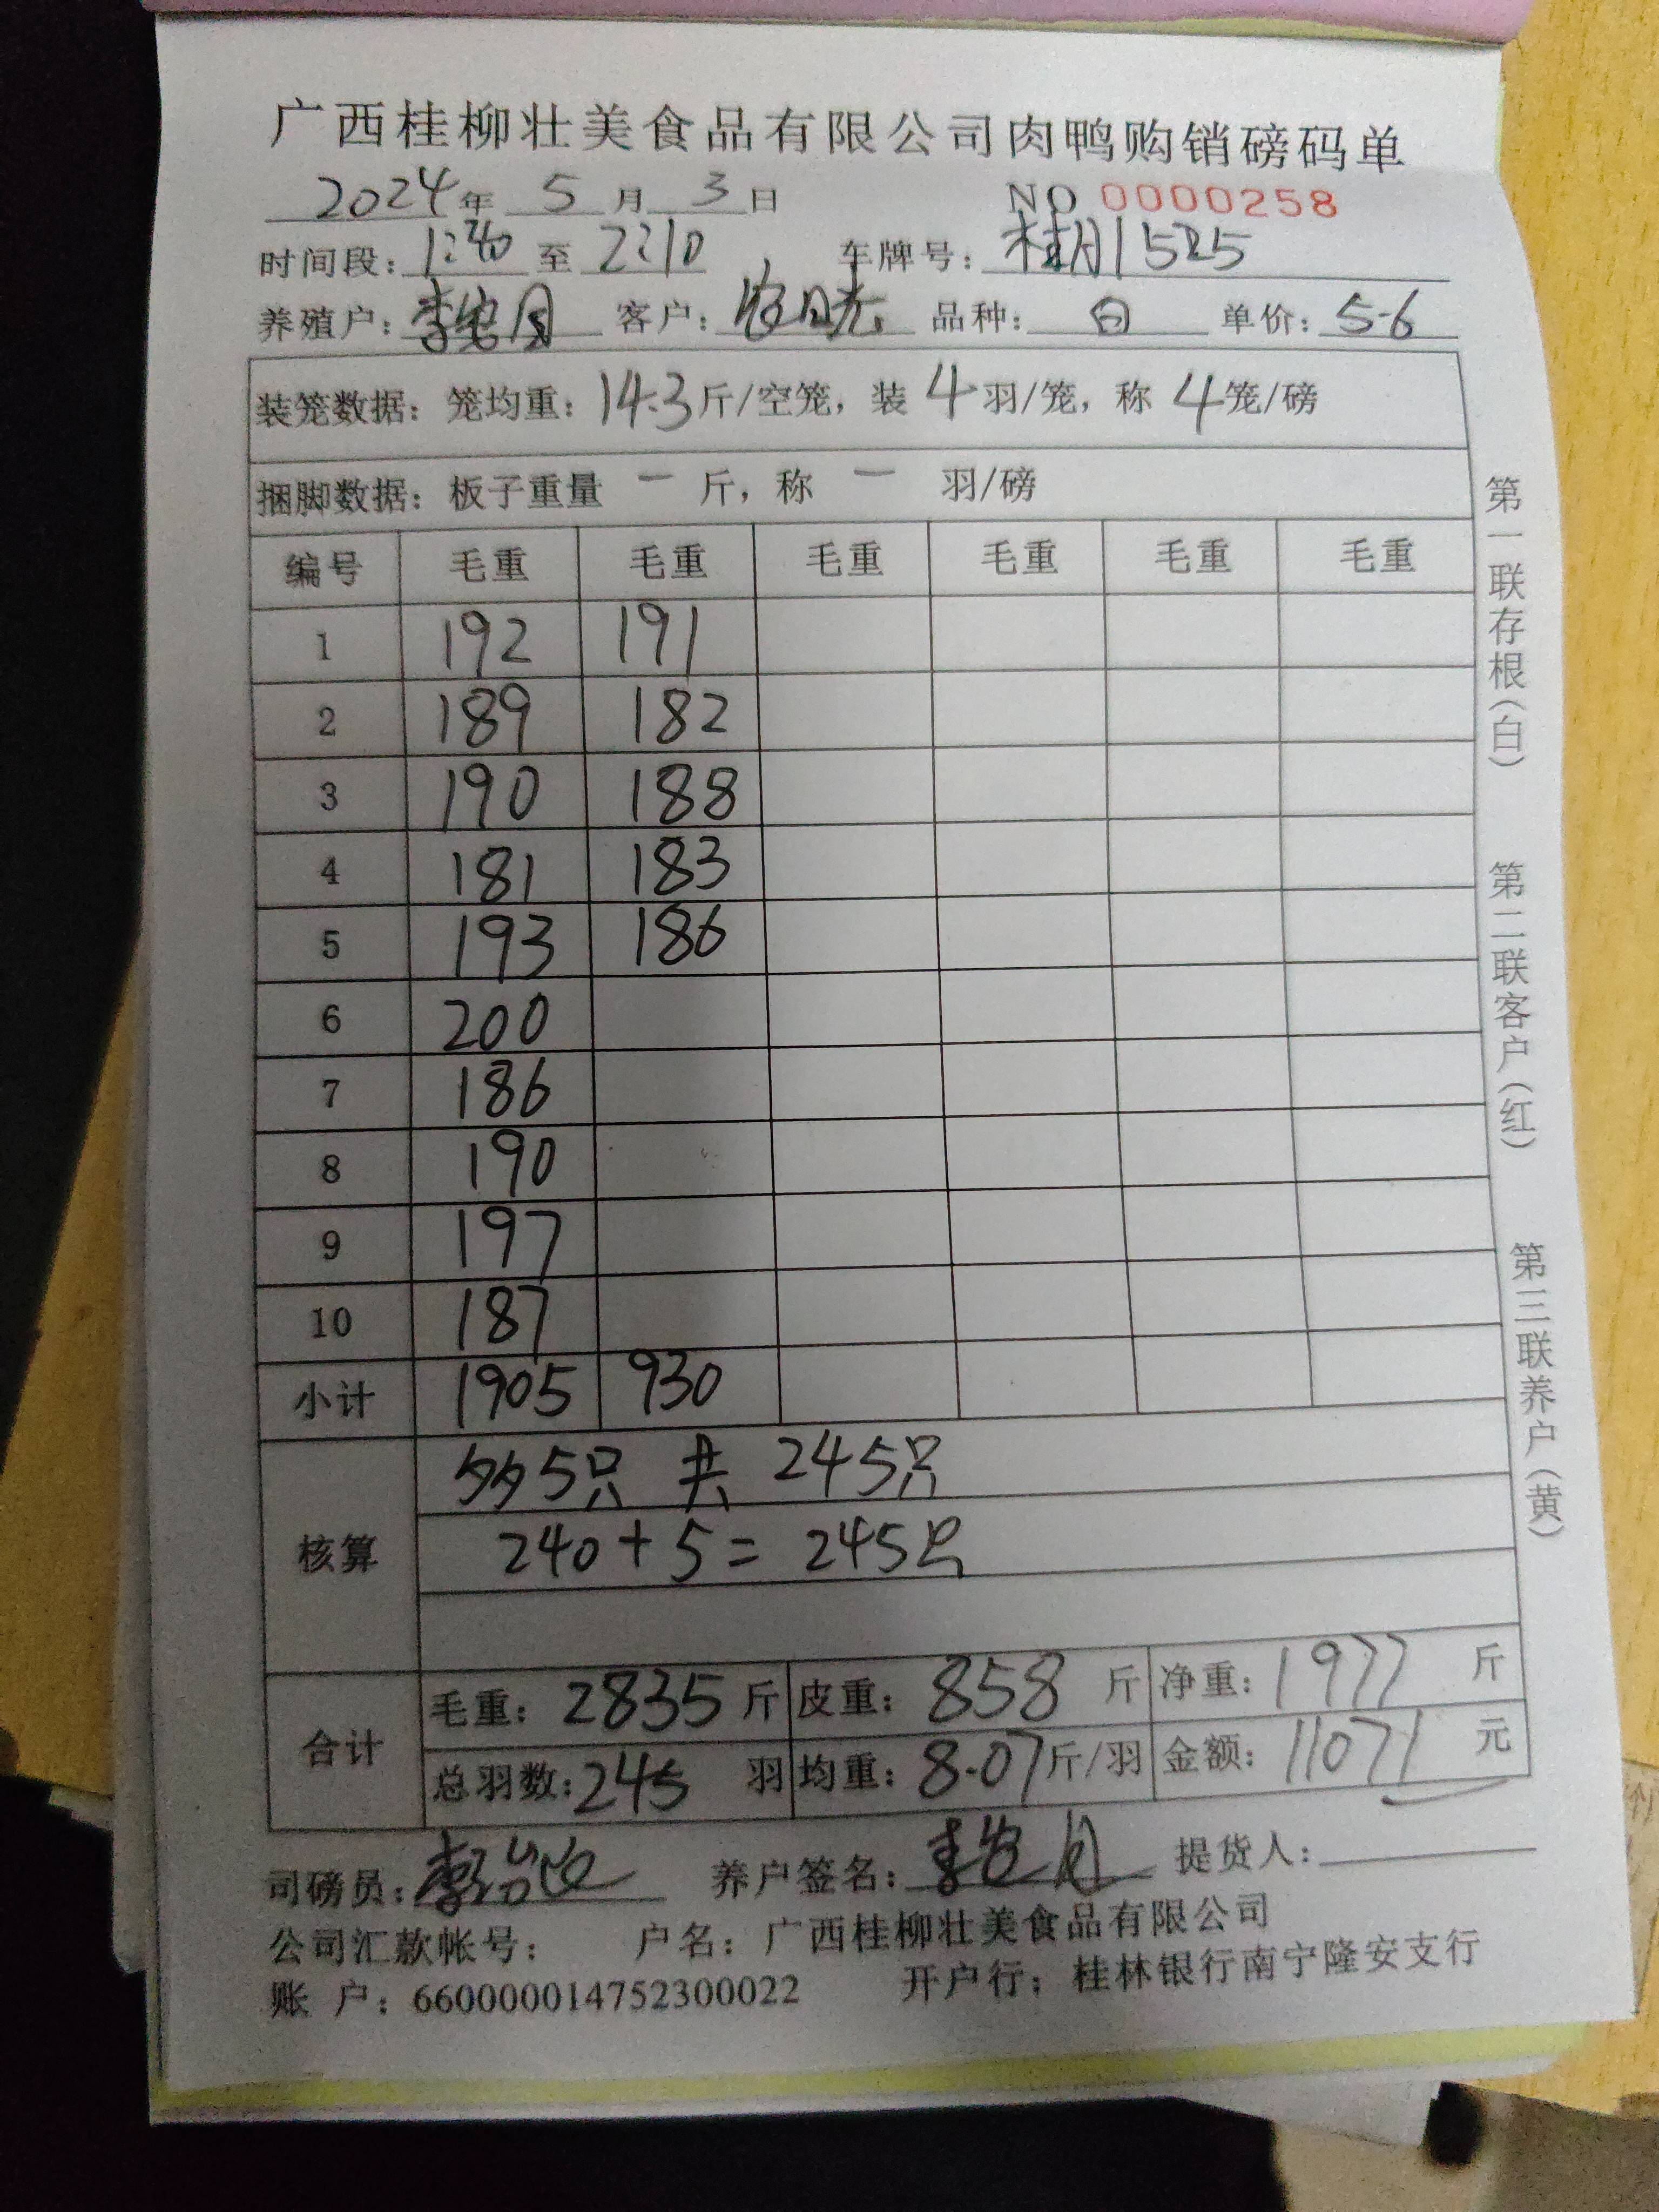 广西桂柳壮美食品有限公司肉鸭购销磅码单
2024年 5 月 3 日 NO 0000258
时间段: 1:40 至 2:10 车牌号: 1525
养殖户: 李 月 客户: 品种: 白 单价: 5.6
装笼数据: 笼均重: 14.3斤/空笼, 装 4 羽/笼, 称 4笼/磅
捆脚数据: 板子重量 一 斤, 称 一 羽/磅
编号 毛重 毛重 毛重 毛重 毛重 毛重
1 192 191
2 189 182
3 190 188
4 181 183
5 193 186
6 200
7 186
8 190
9 197
10 187
小计 1905 930
核算 多5只 共 245只
240+5=245只
合计 毛重: 2835 斤 皮重: 858 斤 净重: 1977 斤
总羽数: 245 羽 均重: 8.07斤/羽 金额: 11071 元
司磅员: 李 养户签名: 李 月 提货人:
公司汇款帐号: 户名: 广西桂柳壮美食品有限公司
账 户: 660000014752300022 开户行: 桂林银行南宁隆安支行
第一联存根(白) 第二联客户(红) 第三联养户(黄)